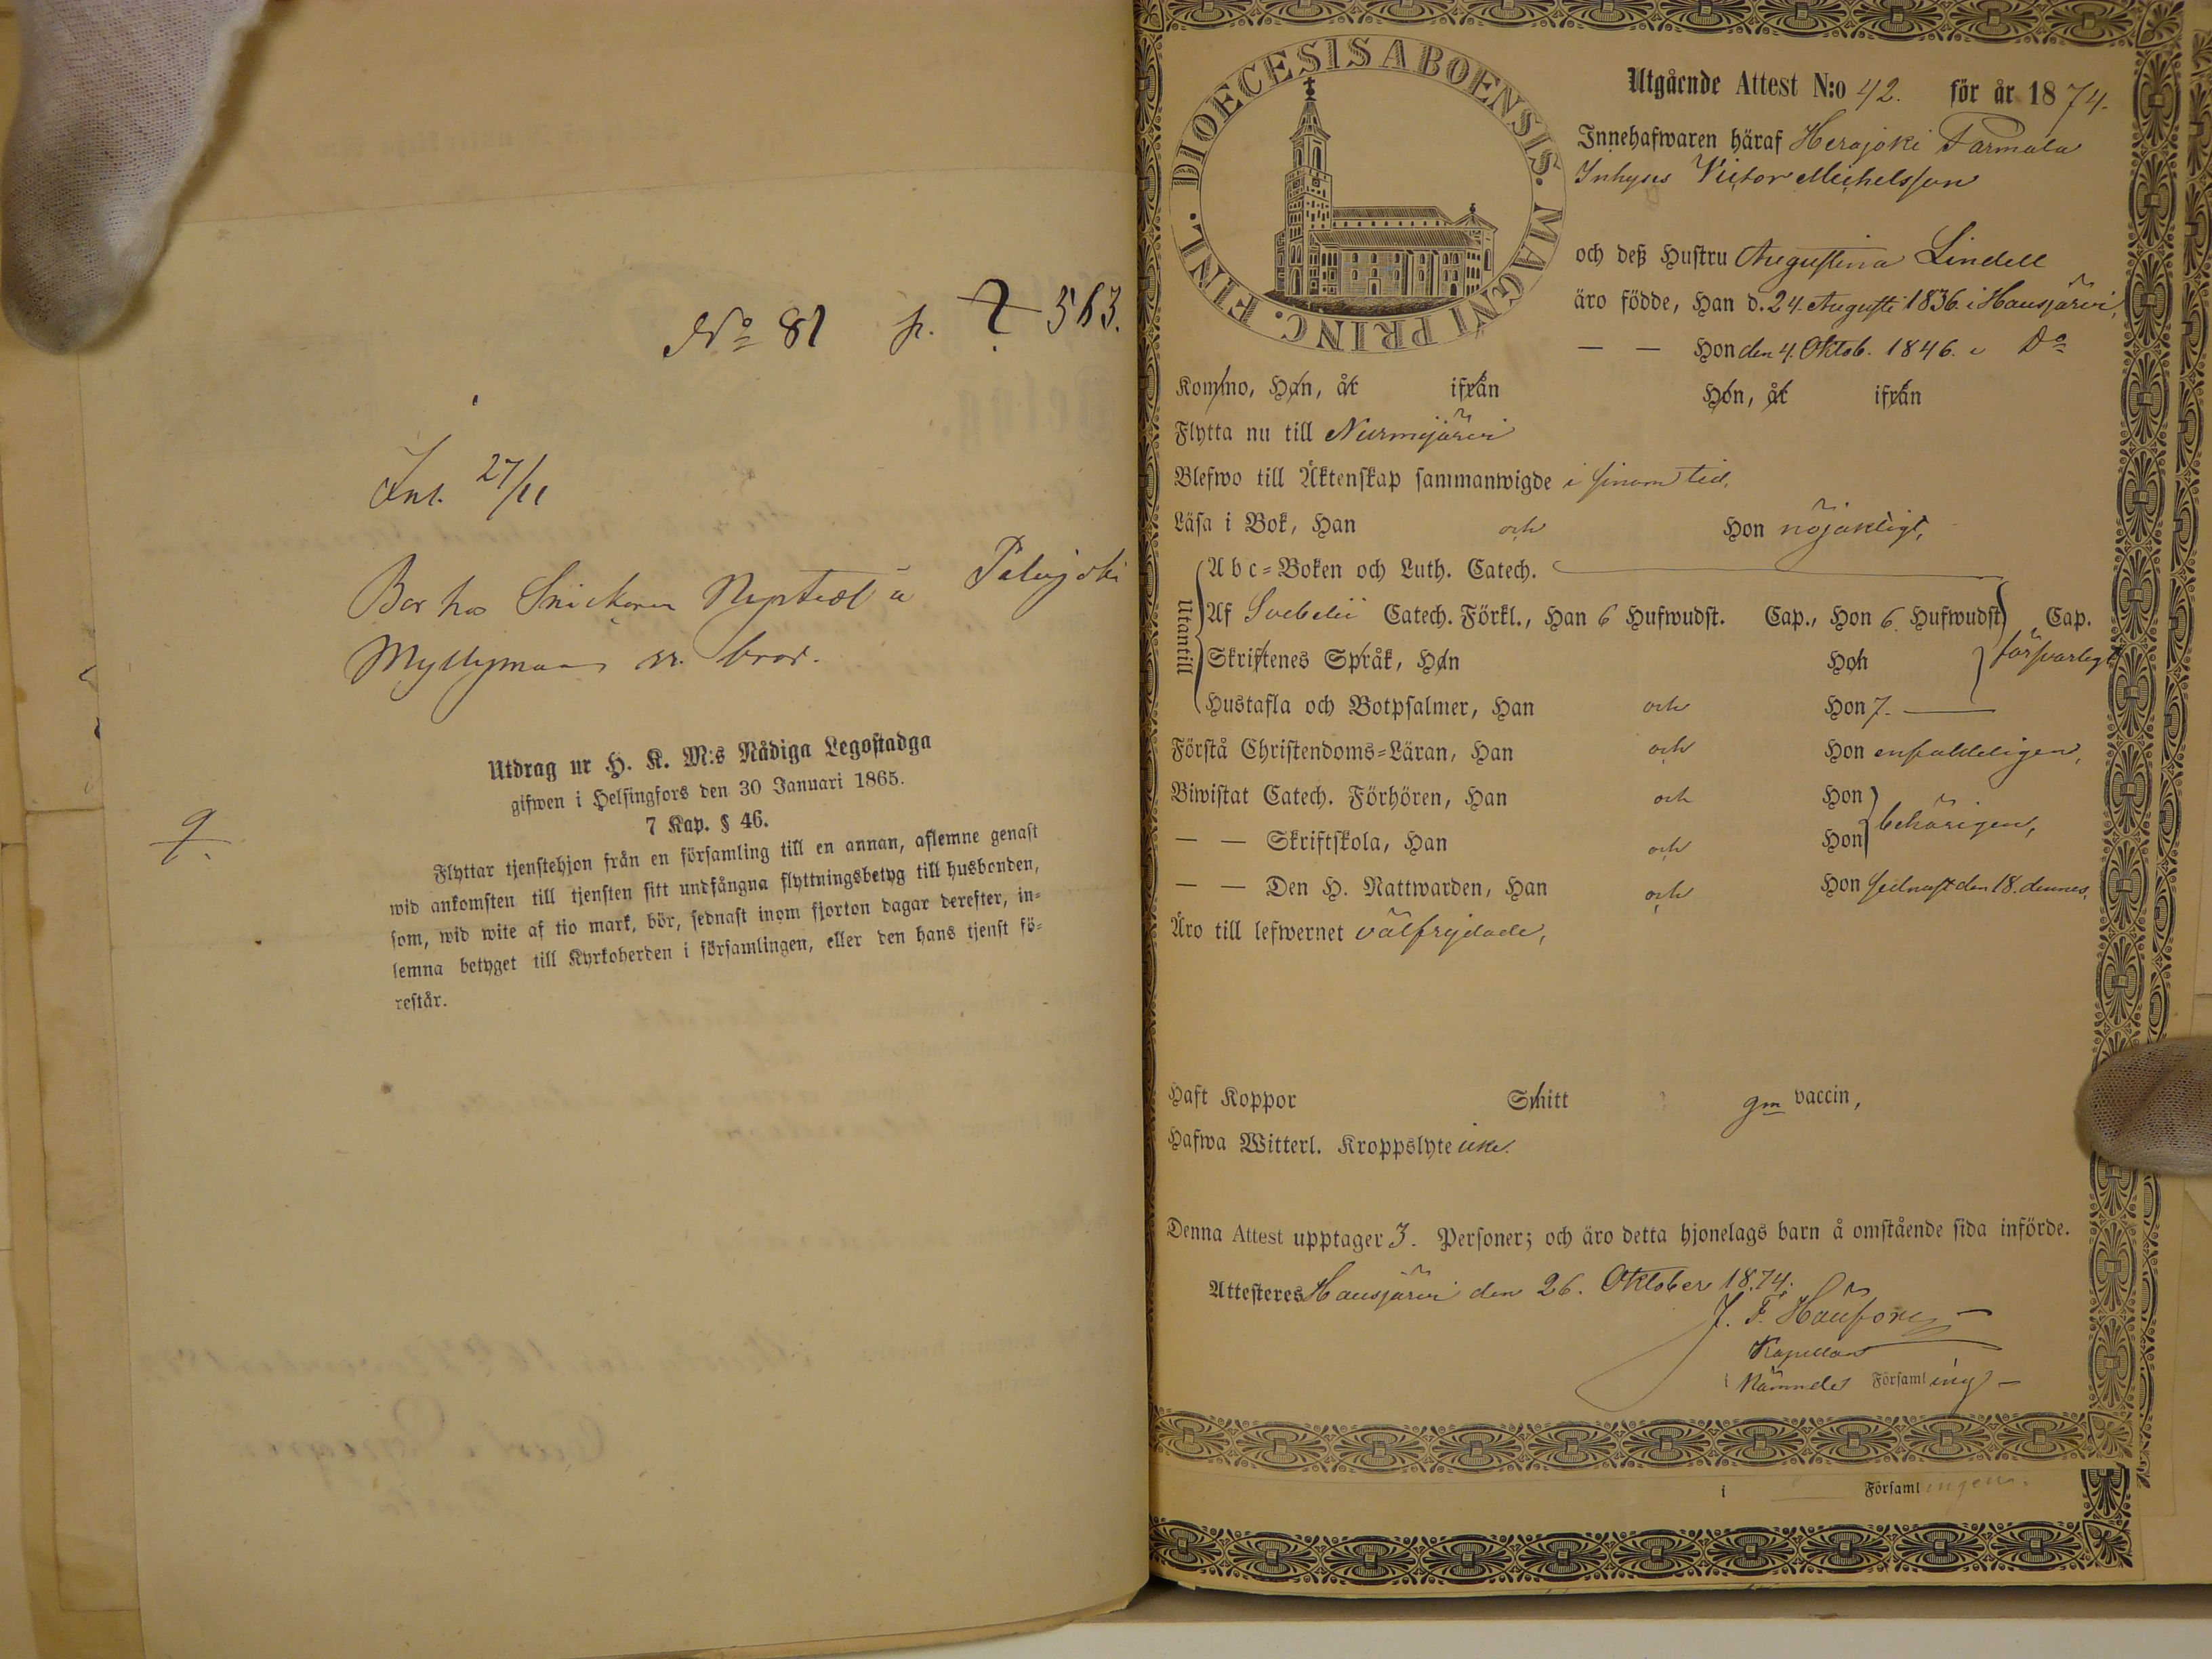 No 81 p. 563.
Inl. 27/11
Bor hos Snickaren å Palojoki
Myllymaa br.
Utdrag ur H. K. M:s Nådiga Legostadga
gifwen i Helsingfors den 30 Januari 1865.
7 Kap. § 46.
Flyttar tjenstehjon från en församling till en annan, aflemne genast
wid ankomsten till tjensten sitt undfångna flyttningsbetyg till husbonden,
som, wid wite af tio mark, bör, sednast inom fjorton dagar derefter, in-
lemna betyget till Kyrkoherden i församlingen, eller den hans tjenst fö-
restår.
FINL. DIOECESIS ABOENSIS. MAGNI PRINC.
Utgående Attest N:o 42. för år 1874.
Innehafwaren häraf Herajoki Parmala
Inhyses Victor Michelsson
och deß Hustru Augustina Lindell
äro födde, Han d. 24. Augusti 1836. i Hausjärvi,
— — Hon den 4. Oktob. 1846. i Do
Kommo, Han, år ifrån Hon, år ifrån
Flytta nu till Nurmijärvi
Blefwo till Äktenskap sammanwigde i sinom tid,
Läsa i Bok, Han och Hon nöjaktigt,
Utantill
Abc-Boken och Luth. Catech.
Af Svebelii Catech. Förkl., Han 6 Hufwudst. Cap., Hon 6. Hufwudst Cap.
Skriftenes Språk, Han Hon försvarligt
Hustafla och Botpsalmer, Han och Hon 7. —
Förstå Christendoms-Läran, Han och Hon enfaldeligen,
Biwistat Catech. Förhören, Han och Hon
— — Skriftskola, Han och Hon behörigen,
— — Den H. Nattwarden, Han och Hon sednast den 18. dennes,
Äro till lefwernet välfrejdade,
Haft Koppor Smitt gm vaccin,
Hafwa Witterl. Kroppslyte icke.
Denna Attest upptager 3. Personer; och äro detta hjonelags barn å omstående sida införde.
Attesteres Hausjärvi den 26. Oktober 1874.
J. F.
Kapellan
i Nämnde Församling
i Församlingen.